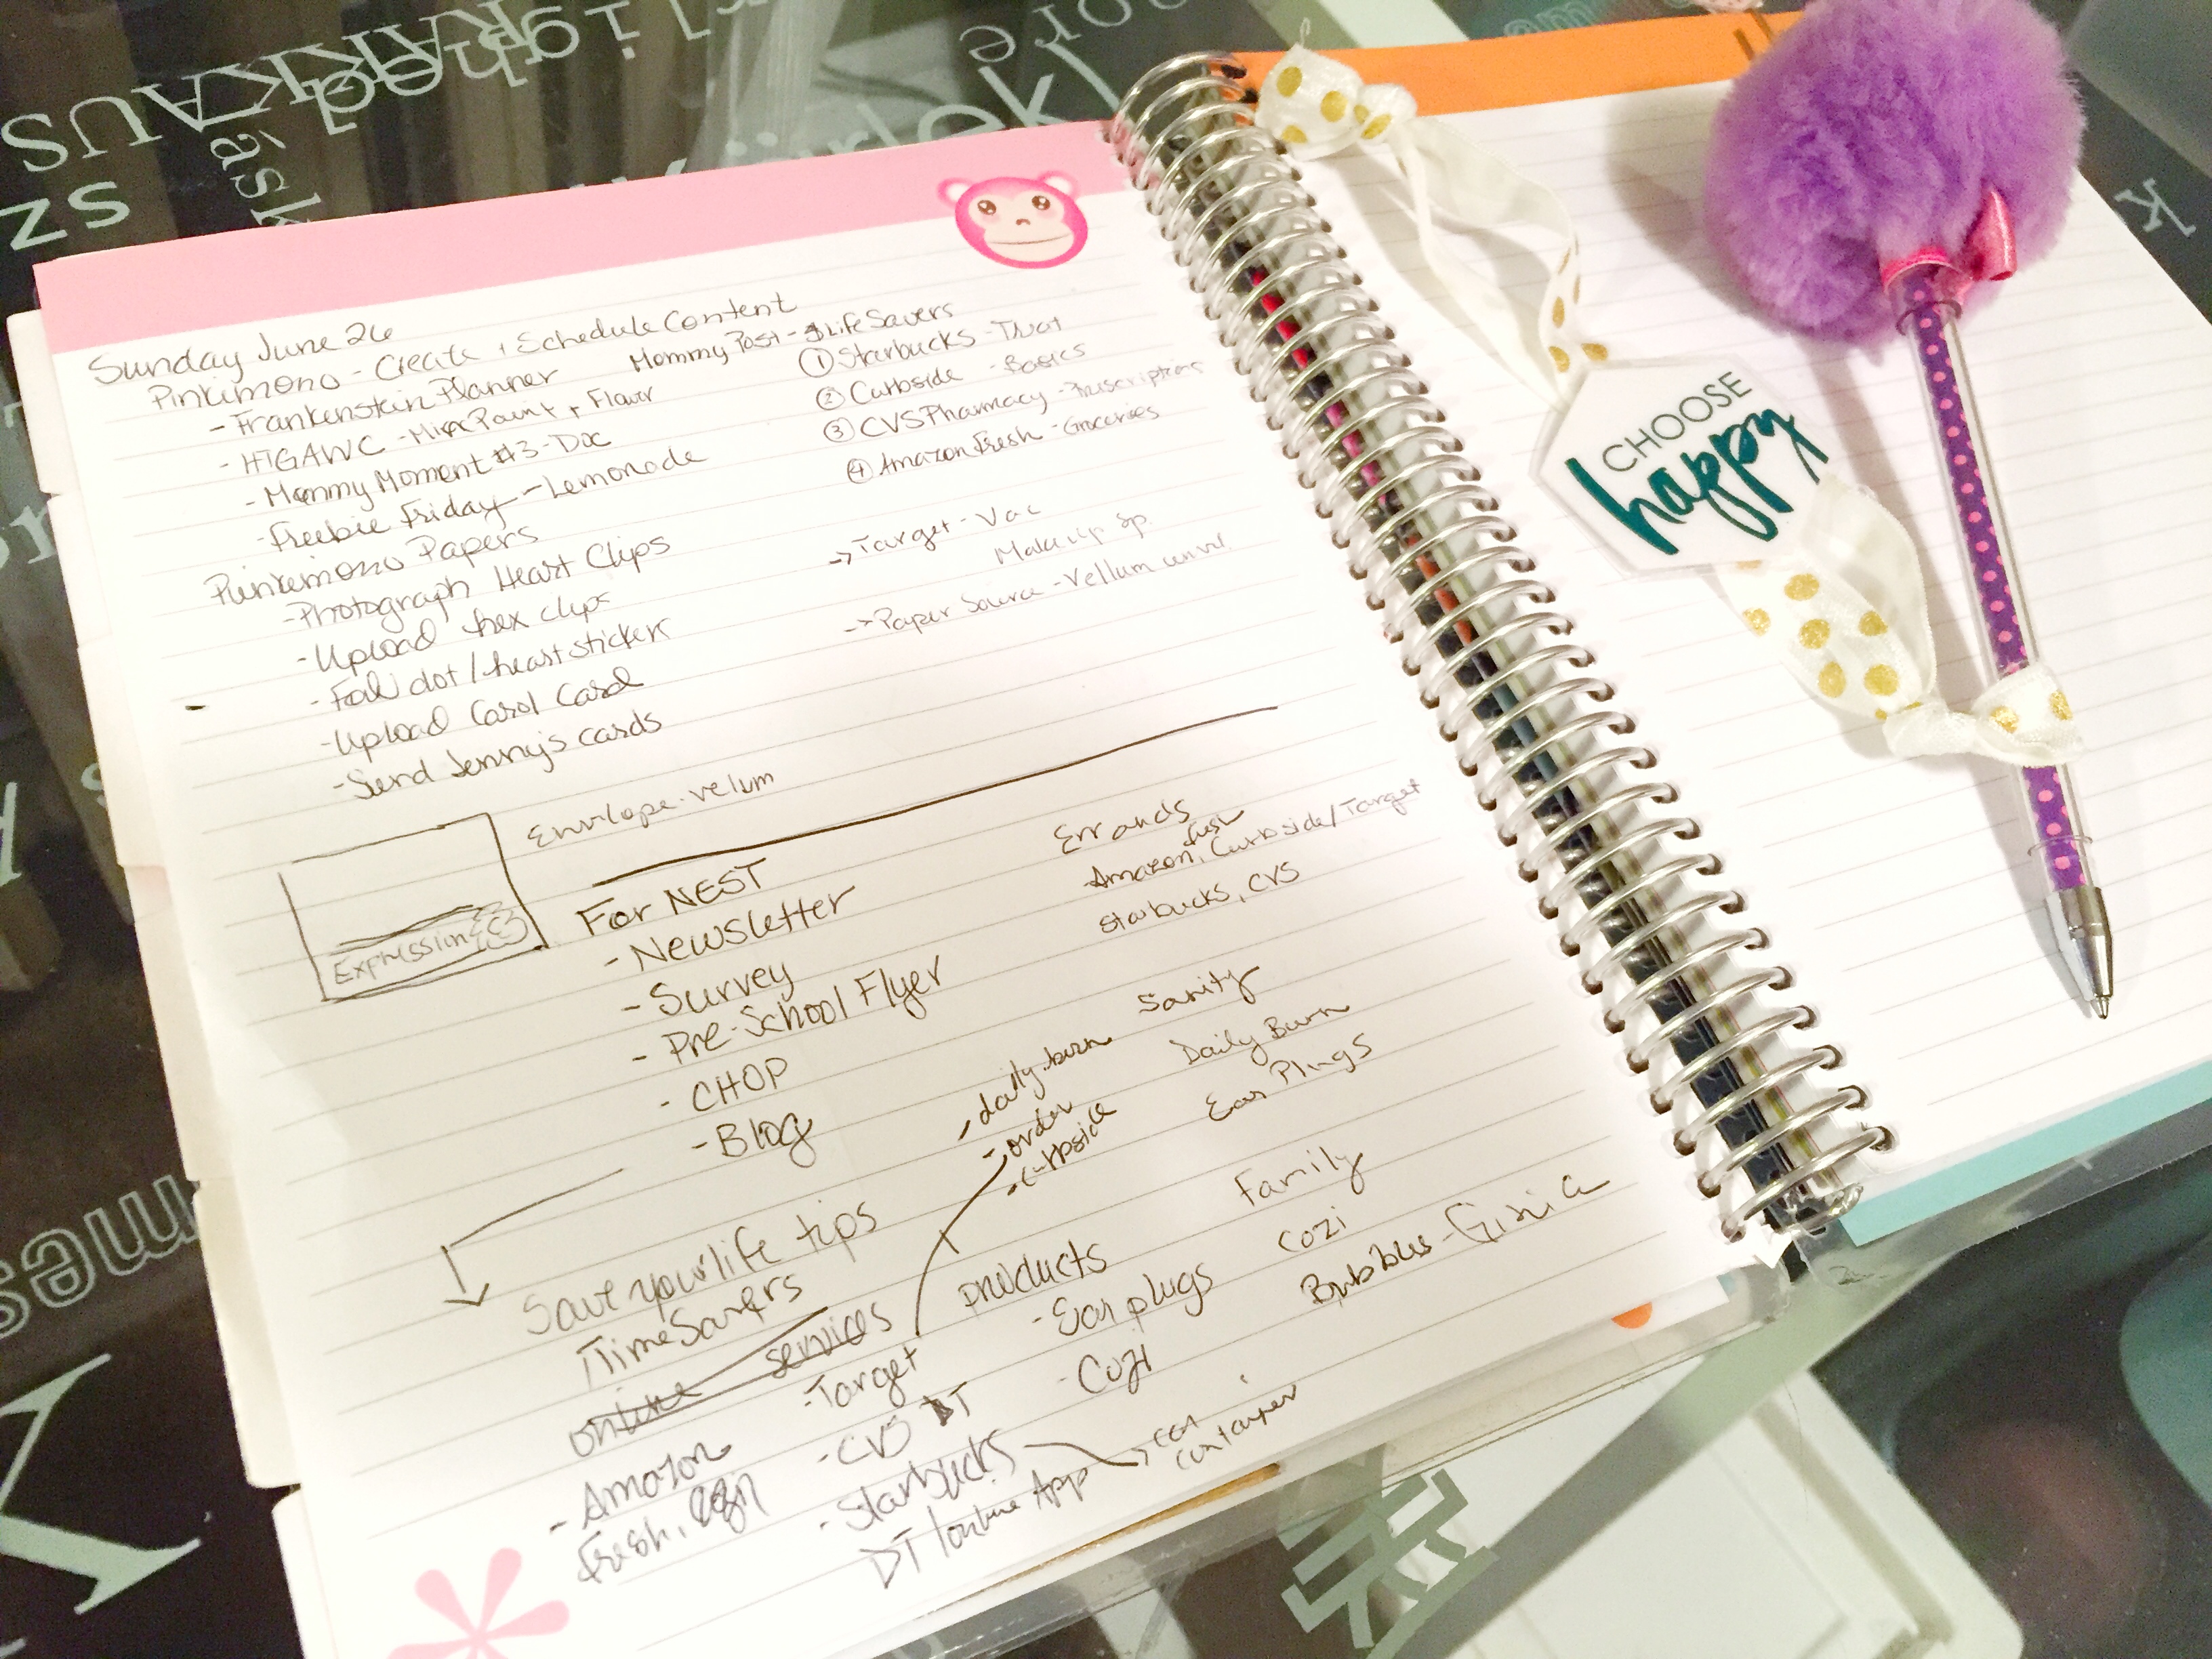 Sunday June 26
Pinkimono - Create + Schedule Content
- Frankenstein Planner
- HIGAWC - Mix Paint + Flour
- Mommy Moment #3 - Doc
- Freebie Friday - Lemonade
Pinkimono Papers
- Photograph Heart Clips
- Upload hex clips
- Foil dot / heart stickers
- Upload Carol Card
- Send Jenny's cards
Mommy Post - Life Savers
① Starbucks - Treat
② Curbside - Basics
③ CVS Pharmacy - Prescriptions
④ Amazon Fresh - Groceries
-> Target - Vac
Makeup Sp.
-> Paper Source - Vellum
Envelope - velum
Expression
For NEST
- Newsletter
- Survey
- Pre-School Flyer
- CHOP
- Blog
Errands
Amazon fresh, Curbside / Target
Starbucks, CVS
Sanity
Daily Burn
Ear Plugs
Family
Cozi
Bubbles -
- daily burn
- order
- curbside
Save your life tips
Time Savers
online services
- Amazon
Fresh,
- Target
- CVS DT
- Starbucks
DT / online App
-> cat
container
products
- Ear plugs
- Cozi
CHOOSE
happy
SUAKRAK
sz
ásk
k